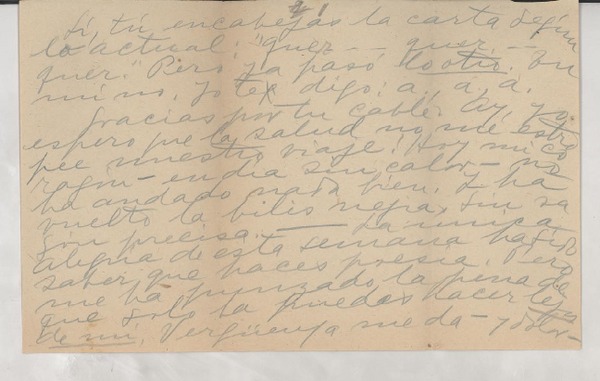 Sí, tú encabezas la carta según
lo actual: "quer - - quer - -
quer." Pero ya pasó lo otro. En
mí no. Yo te digo: a., á, a.
Gracias por tu cable. Ay, yo
espero que la salud no me estro
pee nuestro viaje! Hoy mi co
razón - en día sin calor - no
ha andado nada bien. Y ha
vuelto la bilis negra, sin ra
zón precisa. — La única
alegría de esta semana ha sido
saber que haces poesía. Pero
me ha punzado la pena de
que solo la puedas hacer lejos
de mí. Vergüenza me da - y dolor -